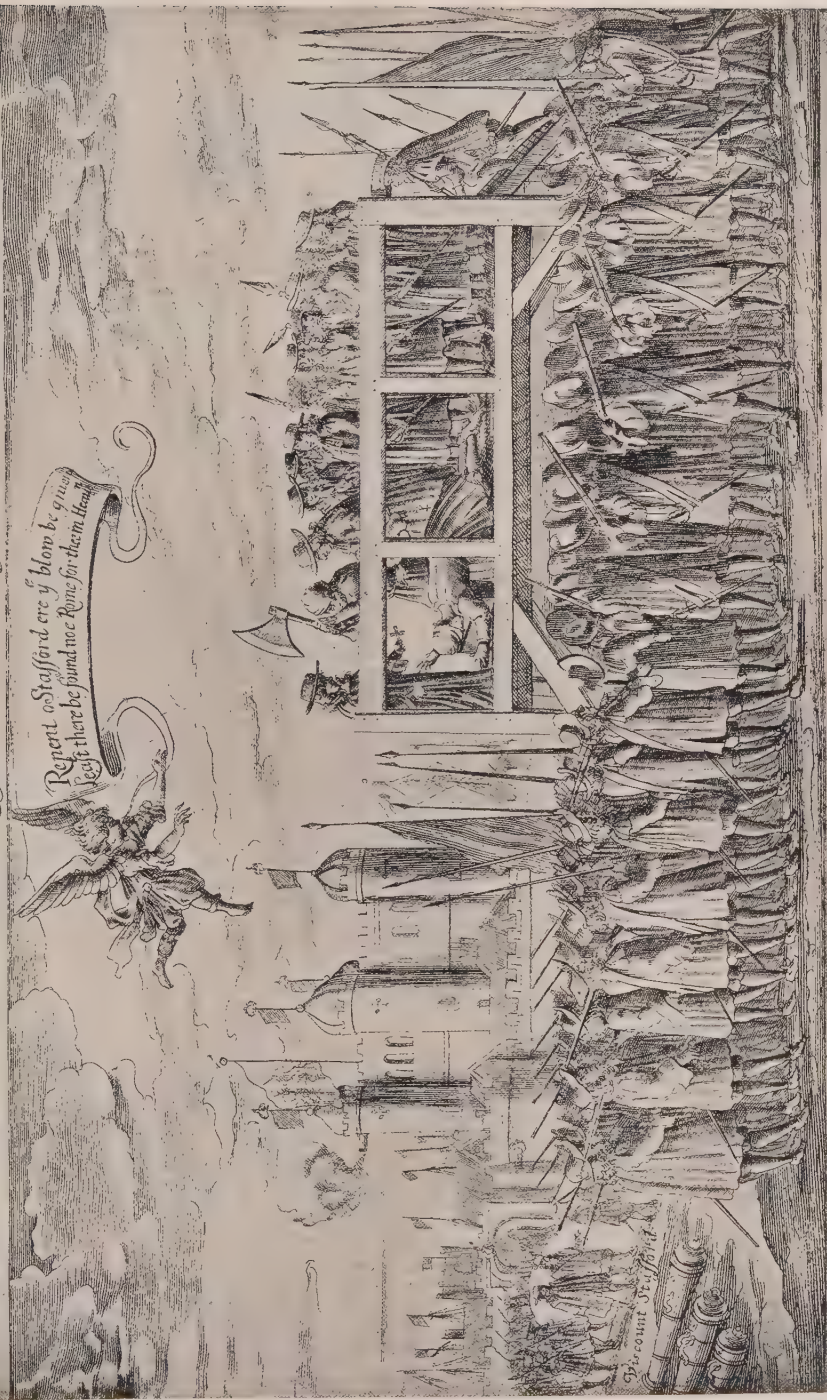 Repent o Stafford ere yᵉ blow be giuen
Least there be found noe Rome for thee in Heauⁿ
Viscount Stafford